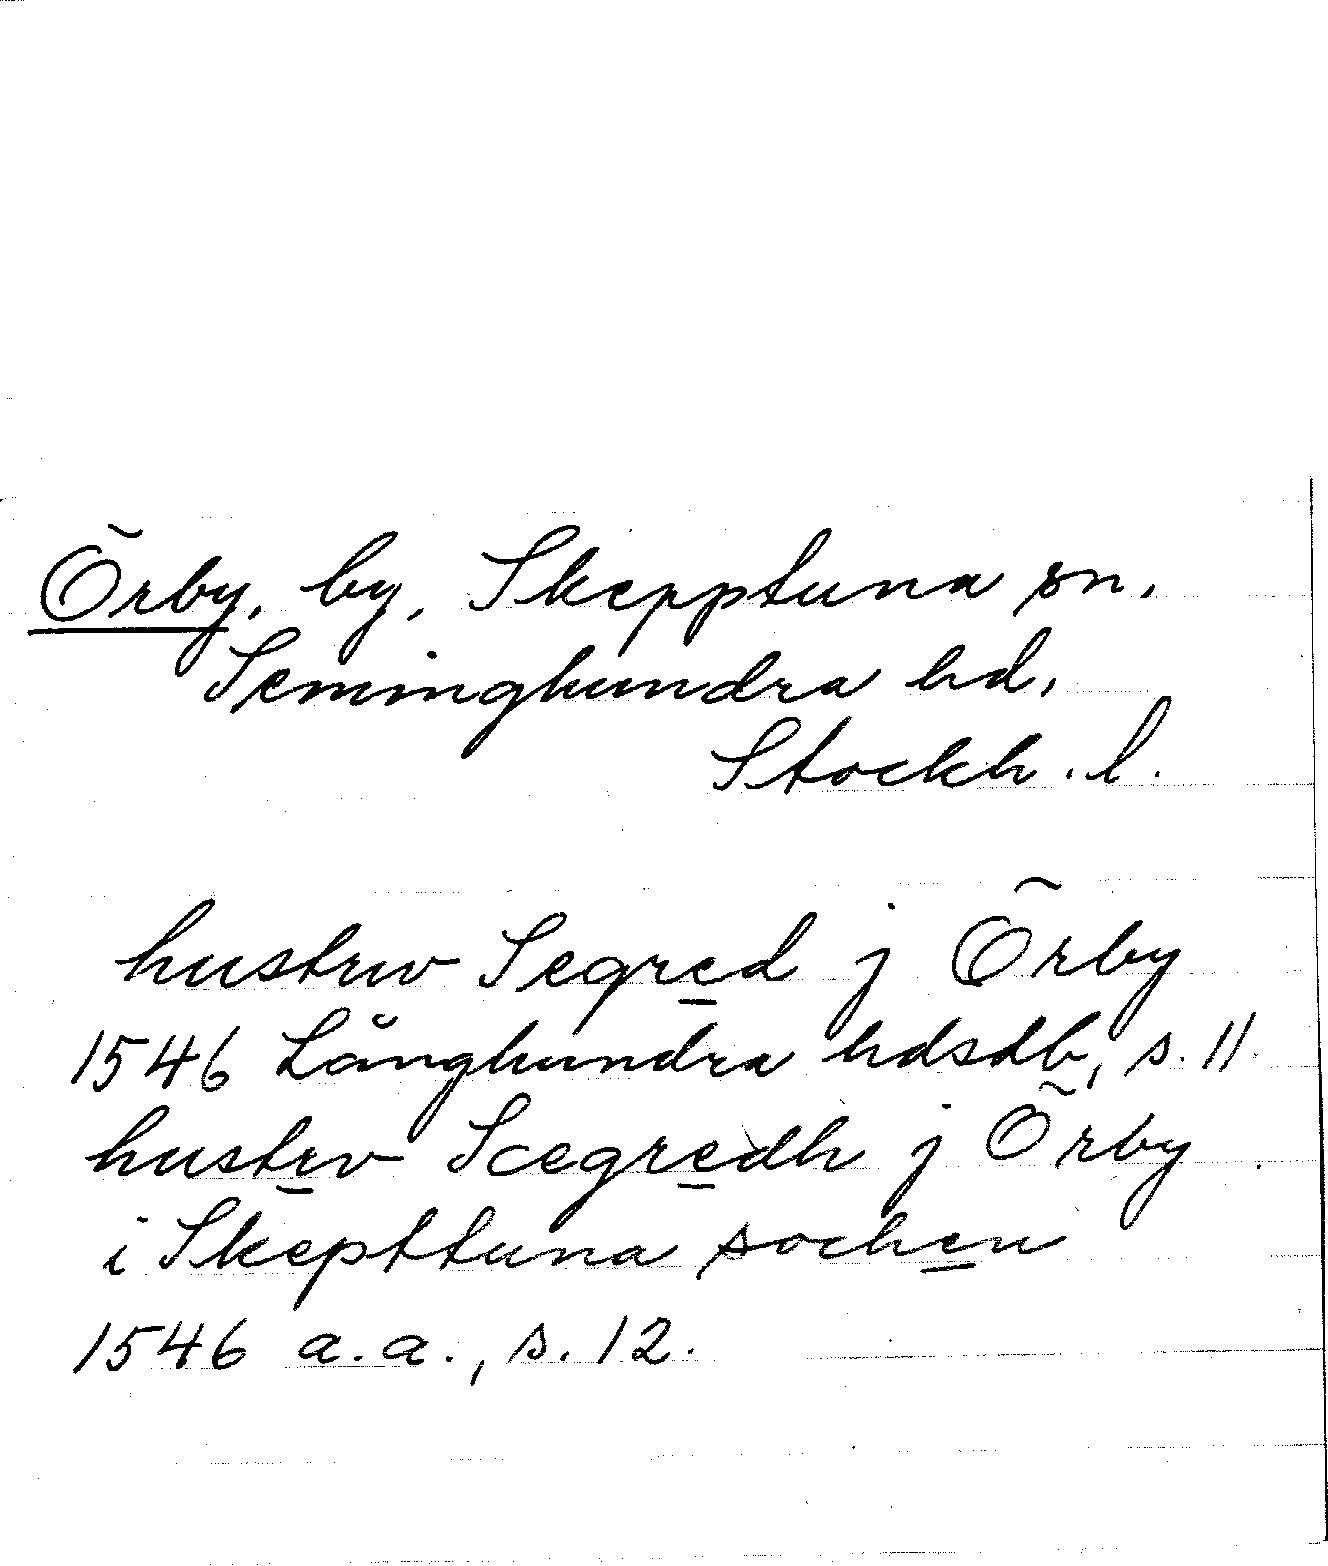 Örby, by, Skepptuna sn,
Seminghundra hd,
Stockh. l.
hustrw Segred j Örby
1546 Långhundra hdsdb, s. 11.
hustrv Scegredh j Örby
i Skepttuna sochen
1546 a.a., s. 12.